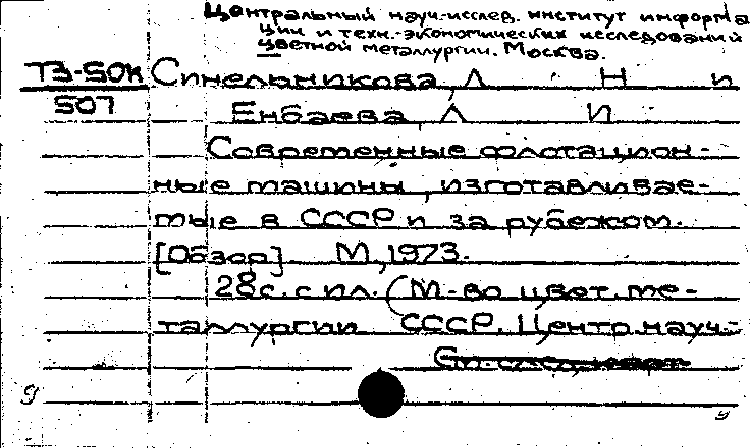 Центральный науч.-исслед. институт информа
ции и техн.-экономических исследований
цветной металлургии. Москва.
ТЗ-50К Синельникова, Л Н и
507 Енбаева, Л И
Современные флотацион-
ные машины, изготавливае-
мые в СССР и за рубежом.
[Обзор] М, 1973.
28с. с ил. (М-во цвет. ме-
таллургии СССР. Центр. науч.-
9 9